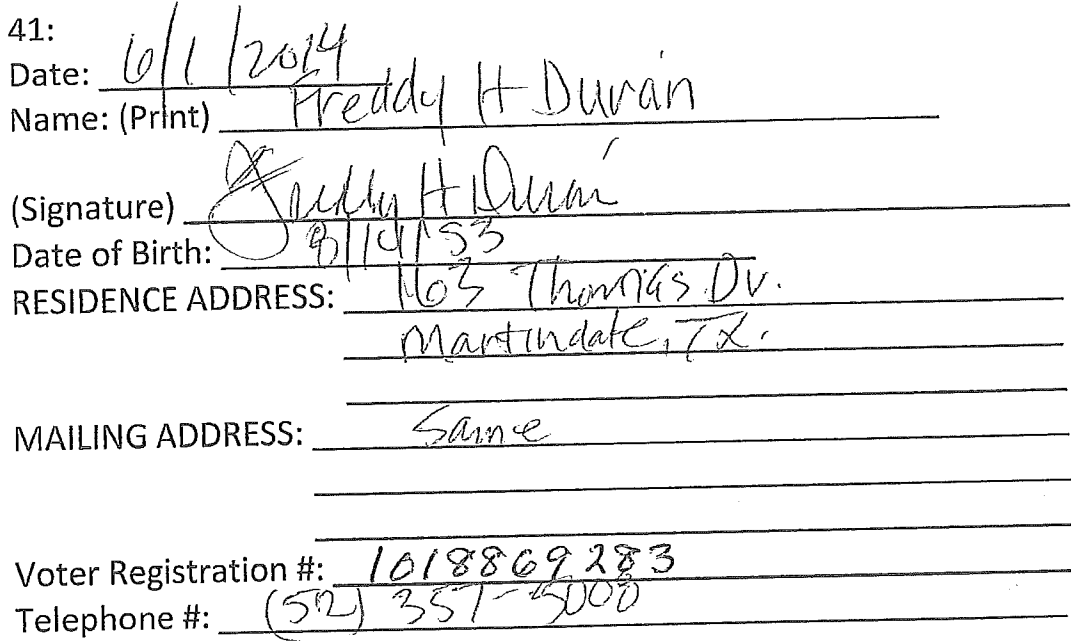 41:
Date: 6/1/2014
Name: (Print) Freddy H Durán
(Signature) Freddy H Durán
Date of Birth: 8/19/53
RESIDENCE ADDRESS: 163 Thomas Dr.
Martindale, TX.
MAILING ADDRESS: Same
Voter Registration #: 1018869283
Telephone #: (512) 357-5008